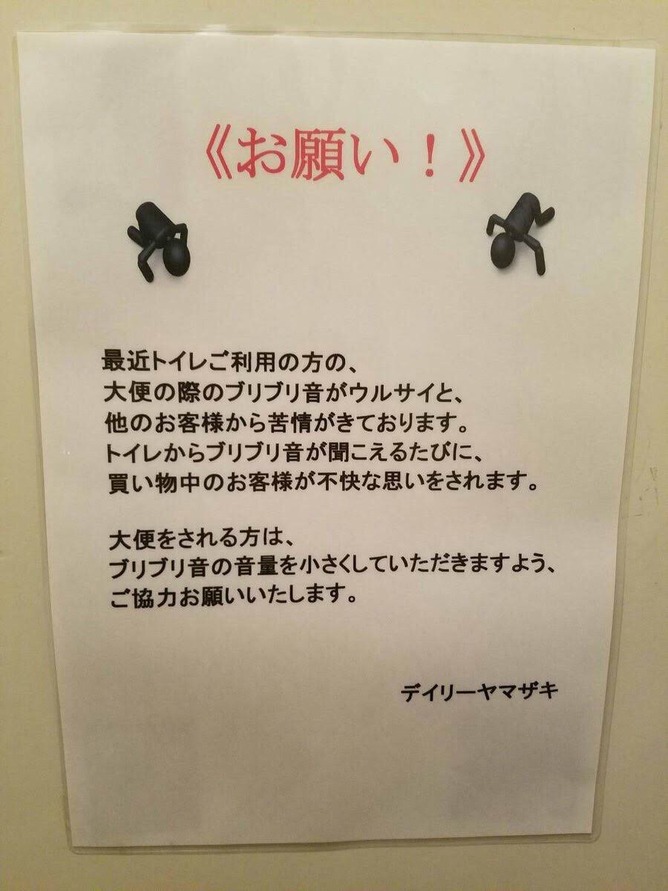 《お願い！》
最近トイレご利用の方の、
大便の際のブリブリ音がウルサイと、
他のお客様から苦情がきております。
トイレからブリブリ音が聞こえるたびに、
買い物中のお客様が不快な思いをされます。
大便をされる方は、
ブリブリ音の音量を小さくしていただきますよう、
ご協力お願いいたします。
デイリーヤマザキ